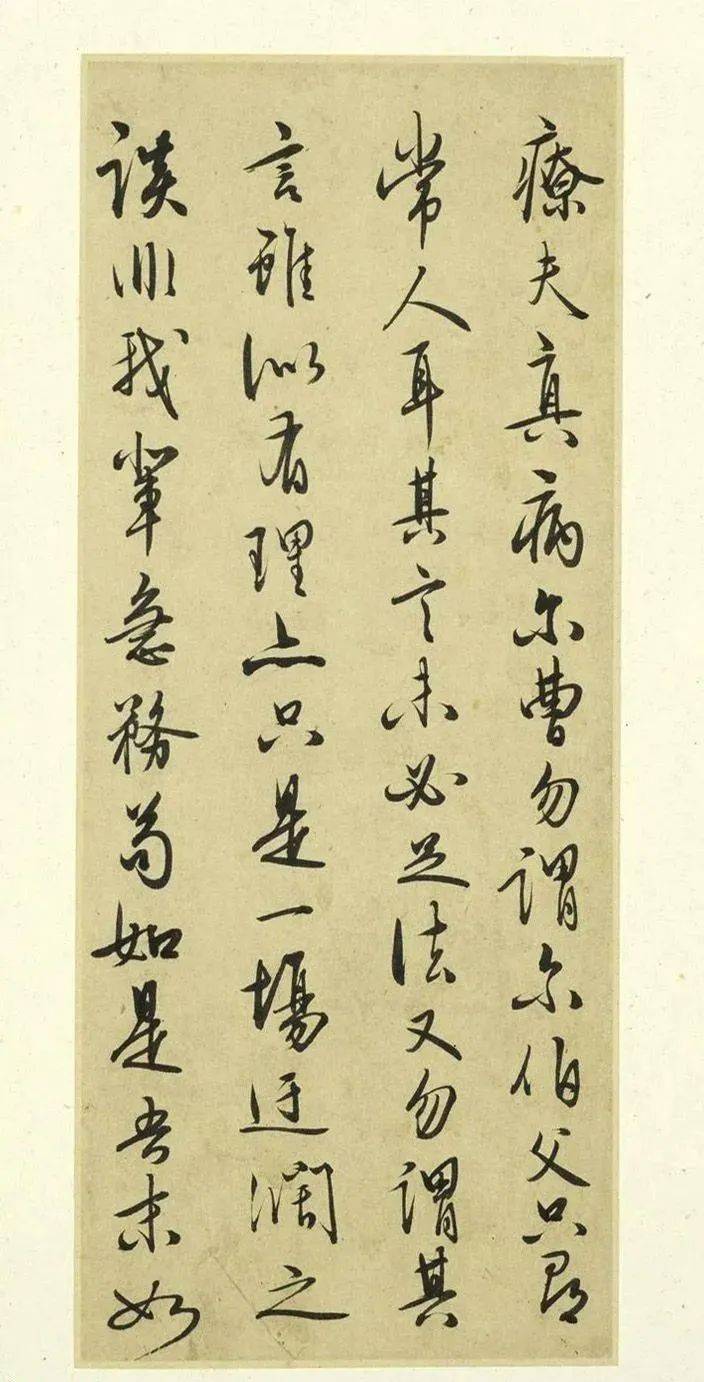 療夫真病尔曹勿謂尔伯父只即
常人耳其言未必足法又勿謂其
言雖似有理亦只是一場迂濶之
談非我輩急務苟如是吾末如